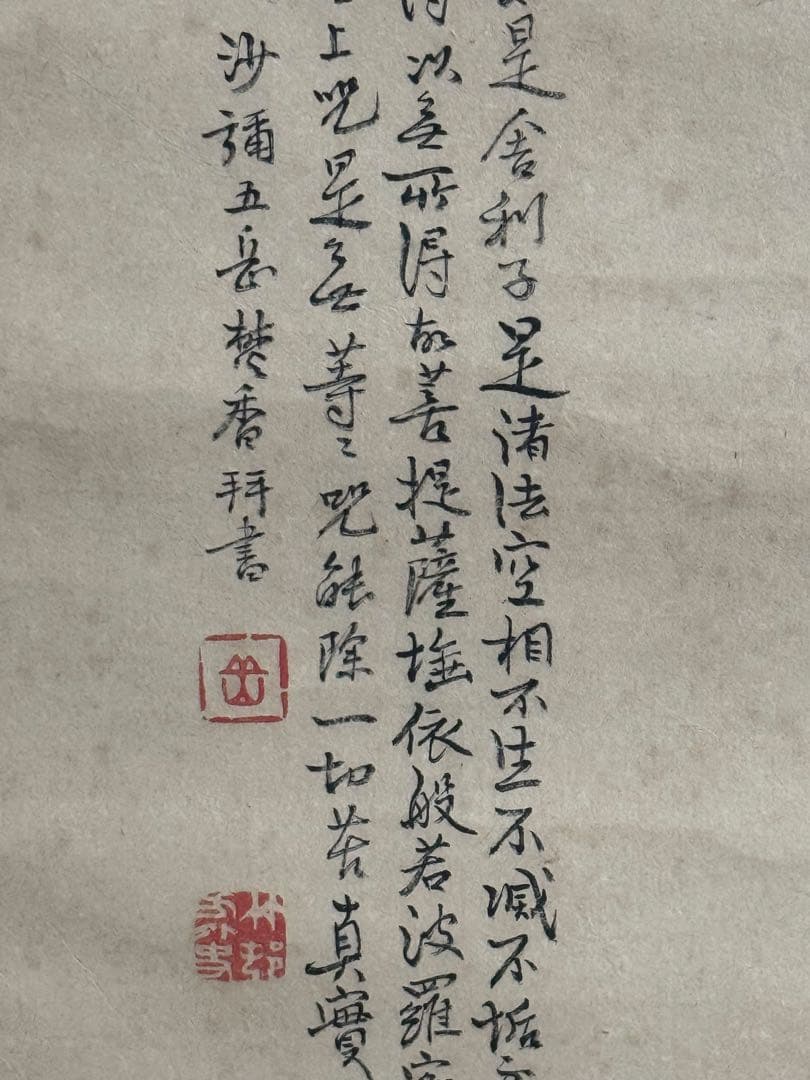 是舍利子是諸法空相不生不滅不垢
得以無所得故菩提薩埵依般若波羅蜜
上咒是無等等咒能除一切苦真實
沙彌五岳焚香拜書